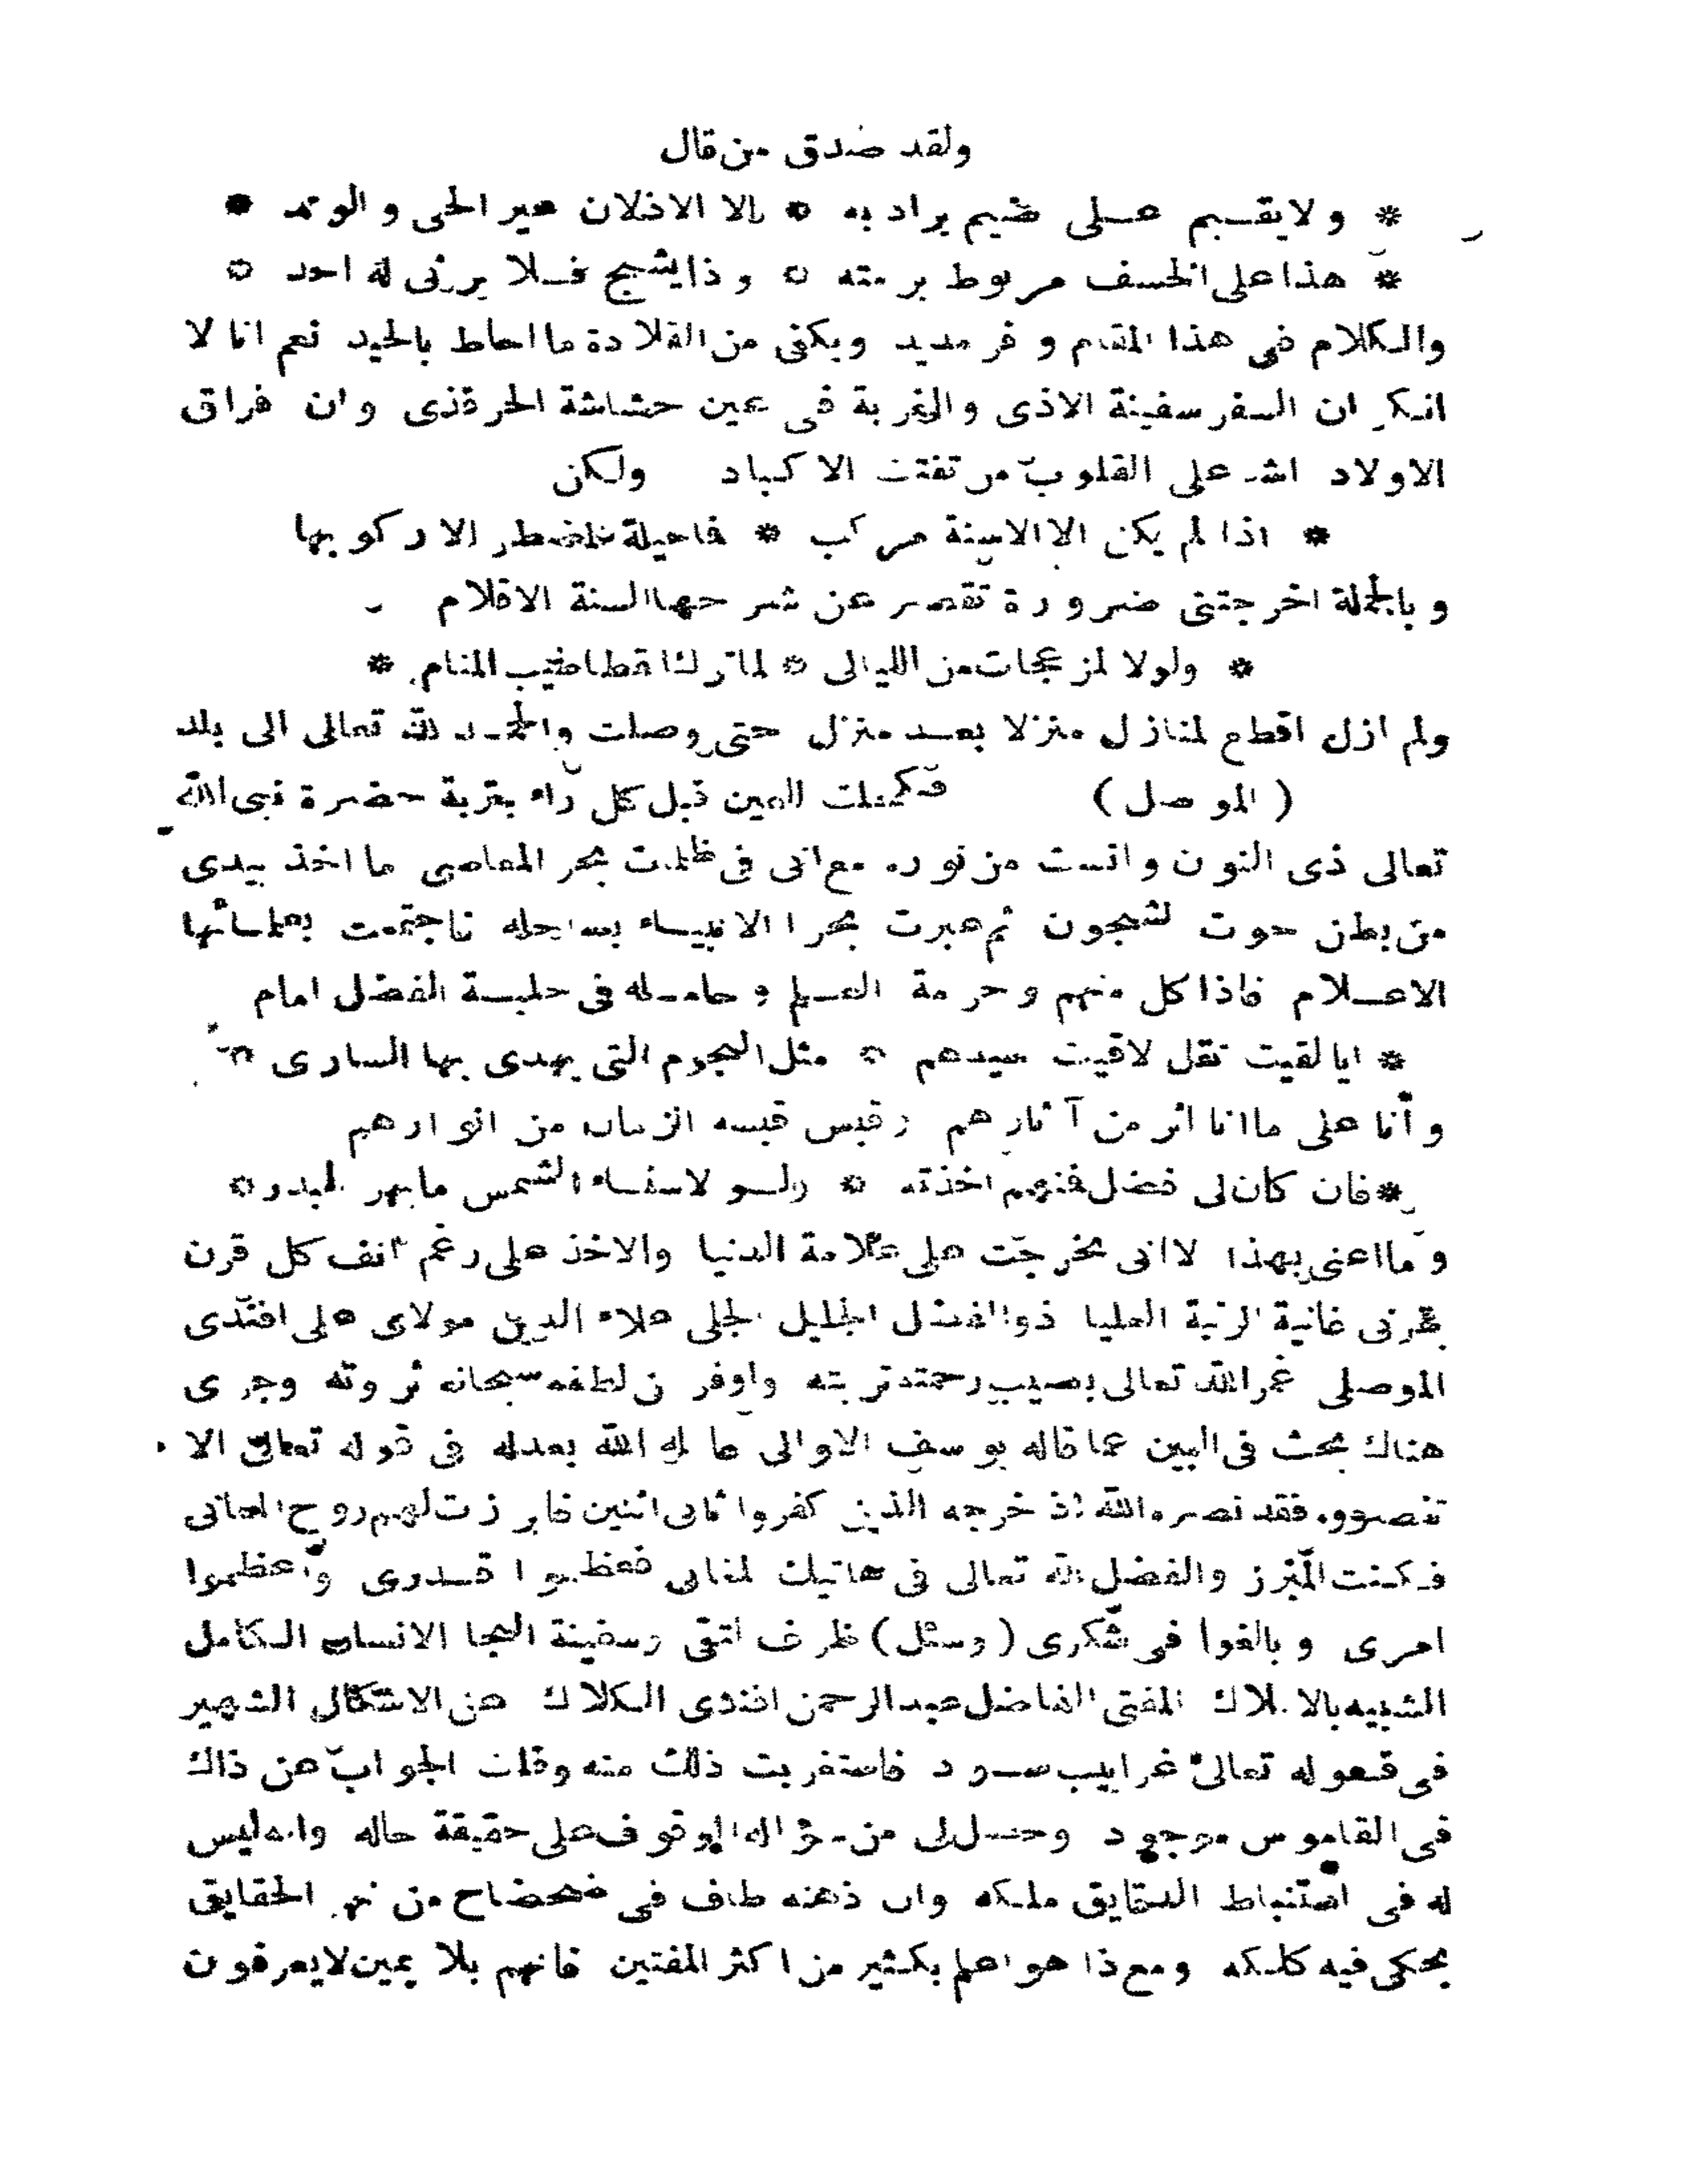 ولقد صدق من قال
* ولا يقيم على ضيم يراد به * الا الاذلان عير الحى والوتد *
* هذا على الخسف مربوط برمته * وذا يشج فلا يرثى له احد *
والكلام فى هذا المقام وفر مديد ويكفى من القلادة ما احاط بالجيد نعم انا لا
انكر ان السفر سفينة الاذى والغربة فى عين حشاشة الحر قذى وان فراق
الاولاد اشد على القلوب من تفتت الاكباد ولكن
* اذا لم يكن الا الاسنة مركب * فما حيلة المضطر الا ركوبها
وبالجملة اخرجتنى ضرورة تقصر عن شرحها السنة الاقلام
* ولولا المزعجات من الليالى * لما ترك القطا طيب المنام *
ولم ازل اقطع المنازل منزلا بعد منزل حتى وصلت والحمد لله تعالى الى بلد
(الموصل) فكحلت العين قبل كل راء بتربة حضرة نبى الله
تعالى ذى النون وانست من نوره مع انى فى ظلمات بحر المعاصى ما اخذ بيدى
من بطن حوت الشجون ثم عبرت بحرا الانبياء بساحله فاجتمعت بعلمائها
الاعلام فاذا كل منهم وحرمة العلم وحامله فى حلبة الفضل امام
* ايا لقيت تقل لاقيت سيدهم * مثل النجوم التى يهدى بها السارى *
وأنا على ما انا اثر من آثارهم وقبس قبسه الزمان من انوارهم
* فان كان لى فضل فمنهم اخذته * ولو لا سناء الشمس ما بهر البدر *
وما اعنى بهذا الا انى تخرجت على علامة الدنيا والاخذ على رغم انف كل قرن
بقرنى غانية الرتبة العليا ذو الفضل الجليل الجلى علاء الدين مولاى على افندى
الموصلى غمر الله تعالى بصيب رحمته تربته واوفر من لطفه سبحانه ثروته وجرى
هناك بحث فى البين عما قاله يوسف الاوالى عامله الله بعدله فى قوله تعالى الا
تنصروه فقد نصره الله اذ اخرجه الذين كفروا ثانى اثنين فابرزت لهم روح المعانى
فكنت المبرز والفضل لله تعالى فى هاتيك المغانى فعظموا قدرى وأعظموا
امرى وبالغوا فى شكرى (وسئل) ظرف التقى وسفينة النجا الانسان الكامل
الشبيه بالاملاك المفتى الفاضل عبد الرحمن افندى الكلاك عن الاشكال الشهير
فى قوله تعالى غرابيب سود فاستغربت ذلك منه وقلت الجواب عن ذاك
فى القاموس موجود وحصل لى من سؤاله الوقوف على حقيقة حاله وانه ليس
له فى استنباط الدقايق ملكه وان ذهنه طاف فى ضحضاح من نهر الحقايق
يحكى فيه كلكه ومع ذا هو اعلم بكثير من اكثر المفتين فانهم بلا يمين لا يعرفون